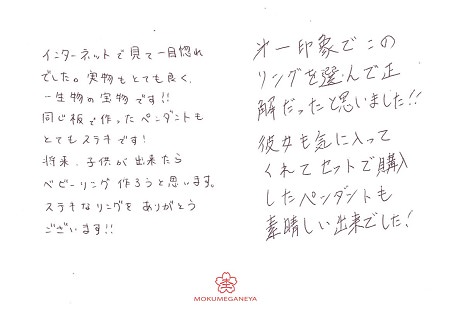 インターネットで見て一目惚れ
でした。実物もとても良く、
一生物の宝物です!!
同じ板で作ったペンダントも
とてもステキです!
将来、子供が出来たら
ベビーリング作ろうと思います。
ステキなリングをありがとう
ございます!!
第一印象でこの
リングを選んで正
解だったと思いました!!
彼女も気に入って
くれてセットで購入
したペンダントも
素晴しい出来でした!
MOKUMEGANEYA